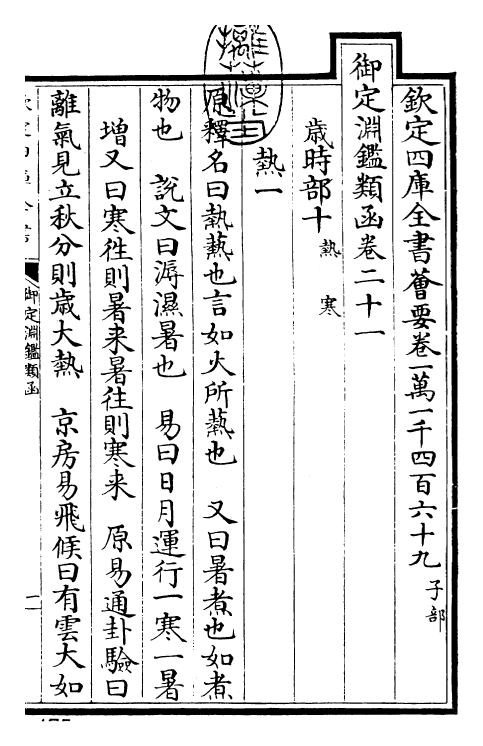 欽定四庫全書薈要卷一萬一千四百六十九 子部
御定淵鑑類函卷二十一
歲時部十 熱 寒
熱一
原釋名曰熱爇也言如火所爇也 又曰暑煮也如煮
物也 說文曰溽濕暑也 易曰日月運行一寒一暑
增又曰寒徃則暑来暑往則寒来 原易通卦驗曰
離氣見立秋分則歲大熱 京房易飛候曰有雲大如
御定淵鑑類函